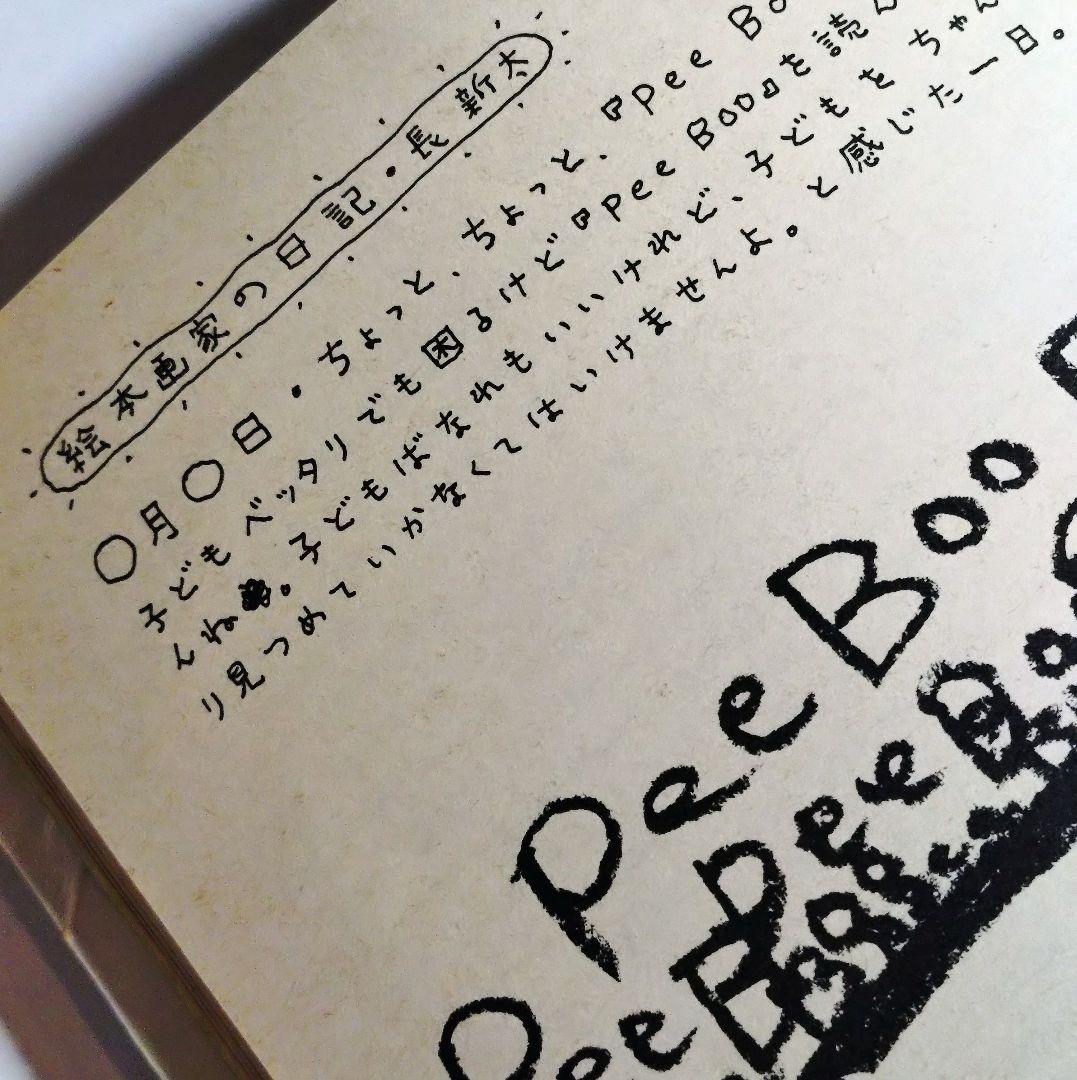 絵本画家の日記・長新太
〇月〇日・ちょっと、ちょっと、『Pee Boo
子どもベッタリでも困るけど『Pee Boo』を読ん
んね。子どもばなれもいいけれど、子どもをちゃん
り見つめていかなくてはいけませんよ。と感じた一日。
Pee Boo
Pee
Pee B